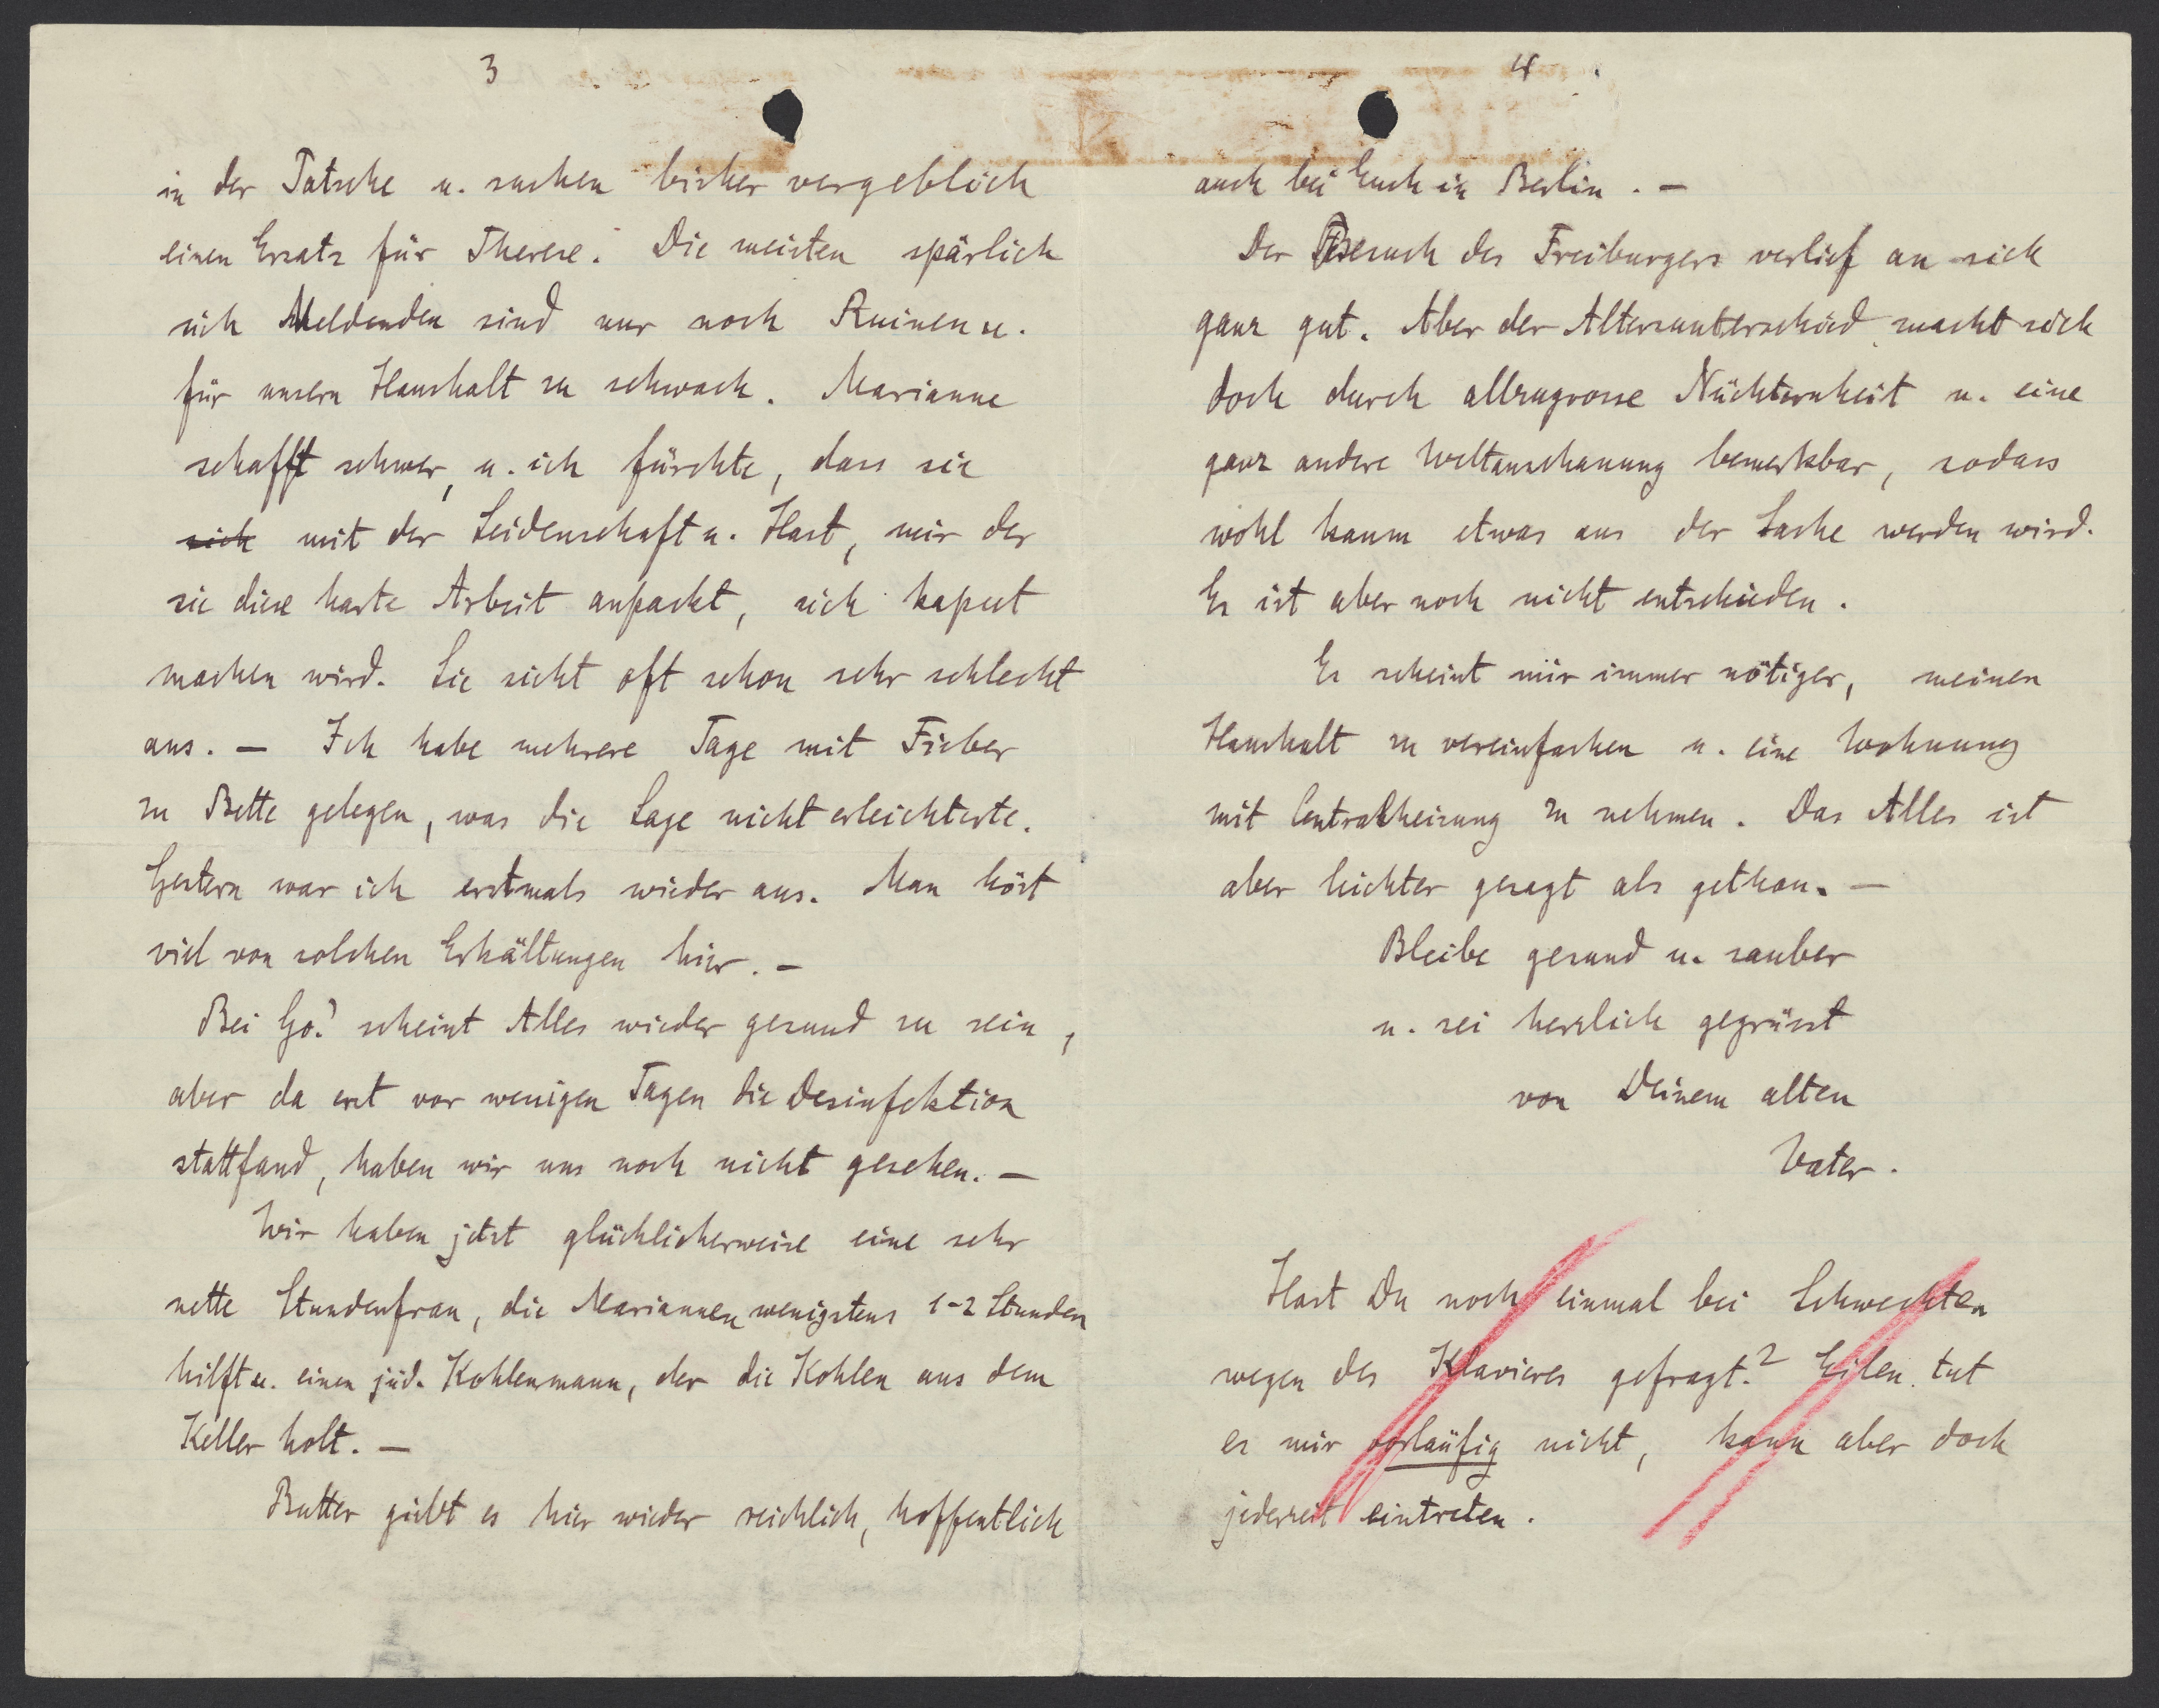 3
in der Patsche u. suchen bisher vergeblich
einen Ersatz für Therese. Die meisten spärlich
sich Meldenden sind nur noch Ruinen u.
für unsern Haushalt zu schwach. Marianne
schafft schwer, u. ich fürchte, dass sie
sich mit der Leidenschaft u. Hast, mir der
sie diese harte Arbeit anpackt, sich kaput
machen wird. Sie sieht oft schon sehr schlecht
aus. – Ich habe mehrere Tage mit Fieber
zu Bette gelegen, was die Lage nicht erleichterte.
Gestern war ich erstmals wieder aus. Man hört
viel von solchen Erkältungen hier. –
Bei Go? scheint Alles wieder gesund zu sein,
aber da erst vor wenigen Tagen die Desinfektion
stattfand, haben wir uns noch nicht gesehen. –
Wir haben jetzt glücklicherweise eine sehr
nette Stundenfrau, die Mariannen wenigstens 1-2 Stunden
hilft u. einen jüd. Kohlenmann, der die Kohlen aus dem
Keller holt. –
Butter giebt es hier wieder reichlich, hoffentlich
4
auch bei Euch in Berlin. –
Der Besuch des Freiburgers verlief an sich
ganz gut. Aber der Altersunterschied macht sich
doch durch allzugrosse Nüchternheit u. eine
ganz andere Weltanschauung bemerkbar, sodass
wohl kaum etwas aus der Sache werden wird.
Es ist aber noch nicht entschieden.
Es scheint mir immer nötiger, meinen
Haushalt zu vereinfachen u. eine Wohnung
mit Centralheizung zu nehmen. Das Alles ist
aber leichter gesagt als gethan. –
Bleibe gesund u. sauber
u. sei herzlich gegrüsst
von Deinem alten
Vater.
Hast Du noch einmal bei Schwechten
wegen des Klavieres gefragt? Eilen tut
es mir vorläufig nicht, kann aber doch
jederzeit eintreten.